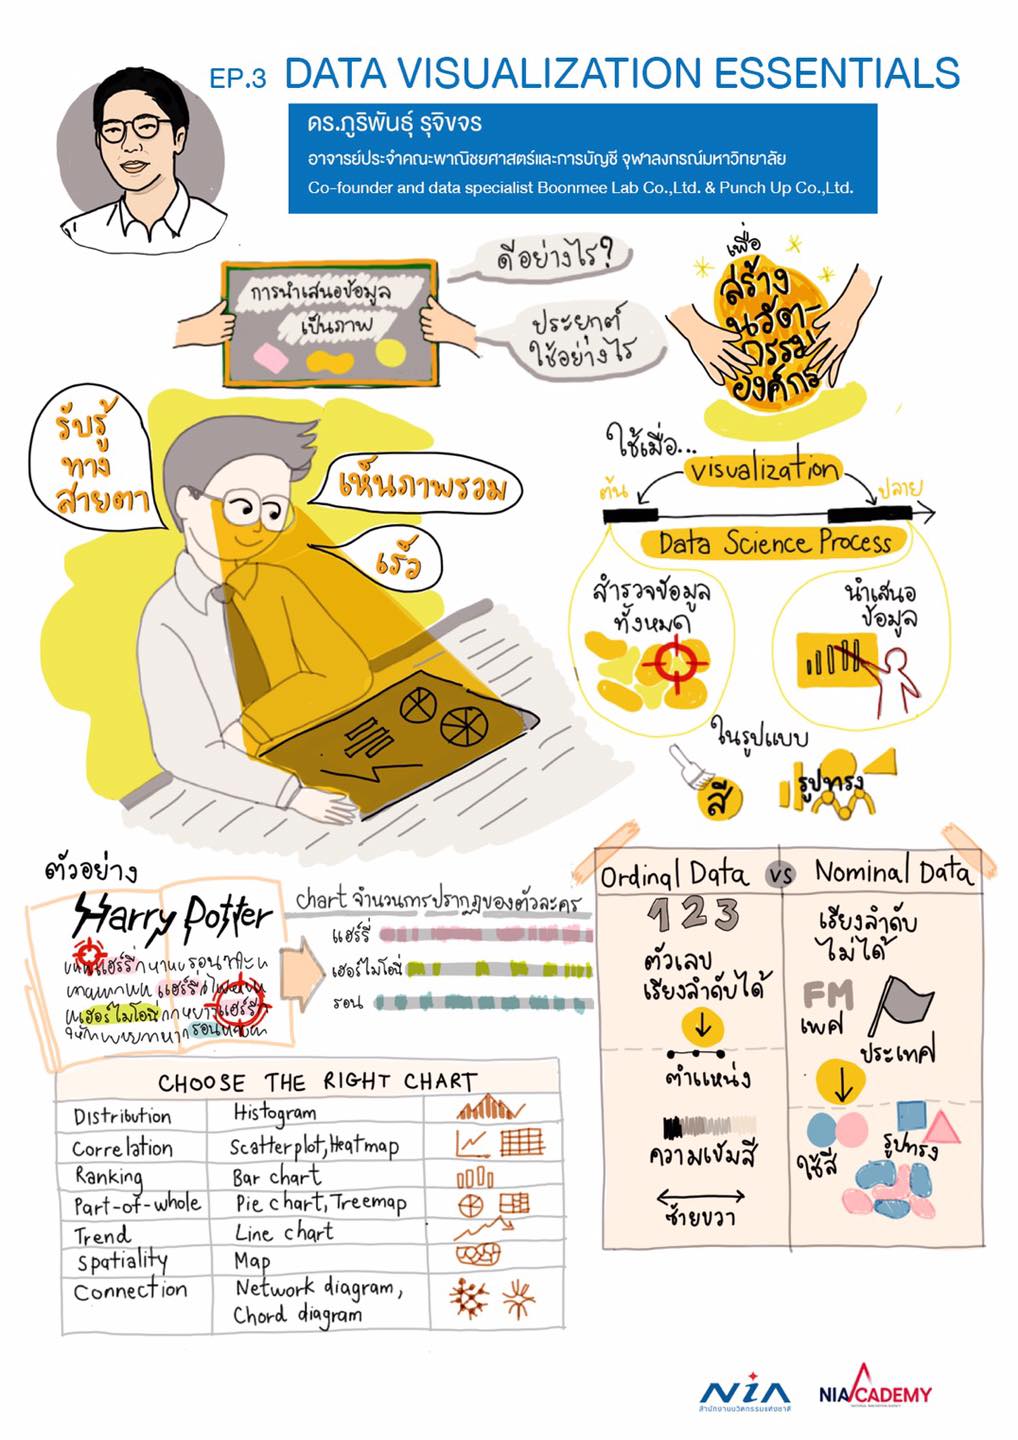 EP.3 DATA VISUALIZATION ESSENTIALS
ดร.ภูริพันธุ์ รุจิขจร
อาจารย์ประจำคณะพาณิชยศาสตร์และการบัญชี จุฬาลงกรณ์มหาวิทยาลัย
Co-founder and data specialist Boonmee Lab Co.,Ltd. & Punch Up Co.,Ltd.
การนำเสนอข้อมูล
เป็นภาพ
ดีอย่างไร?
ประยุกต์
ใช้อย่างไร
เพื่อ
สร้าง
นวัต-
กรรม
องค์กร
รับรู้
ทาง
สายตา
เห็นภาพรวม
เร็ว
ใช้เมื่อ...
visualization
ต้น
ปลาย
Data Science Process
สำรวจข้อมูล
ทั้งหมด
นำเสนอ
ข้อมูล
ในรูปแบบ
สี
รูปทรง
ตัวอย่าง
Harry Potter
แฮร์รี่
รอน
แฮร์รี่
เฮอร์ไมโอนี่
แฮร์รี่
รอน
chart จำนวนการปรากฏของตัวละคร
แฮร์รี่
เฮอร์ไมโอนี่
รอน
CHOOSE THE RIGHT CHART
Distribution Histogram
Correlation Scatterplot, Heatmap
Ranking Bar chart
Part-of-whole Pie chart, Treemap
Trend Line chart
Spatiality Map
Connection Network diagram,
Chord diagram
Ordinal Data vs Nominal Data
1 2 3
ตัวเลข
เรียงลำดับได้
ตำแหน่ง
ความเข้มสี
ซ้ายขวา
เรียงลำดับ
ไม่ได้
FM
เพศ
ประเทศ
ใช้สี
รูปทรง
NIA
สำนักงานนวัตกรรมแห่งชาติ
NIA ACADEMY